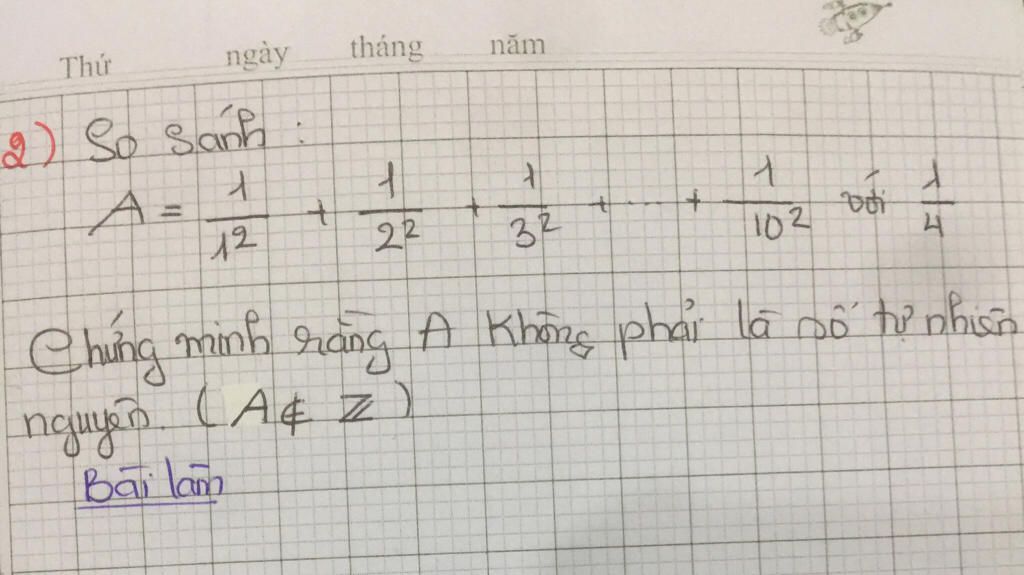 Thứ ngày tháng năm
2) So sánh :
A = 1/1² + 1/2² + 1/3² + ... + 1/10² với 1/4
Chứng minh rằng A không phải là số tự nhiên
nguyên. (A ∉ ℤ)
Bài làm